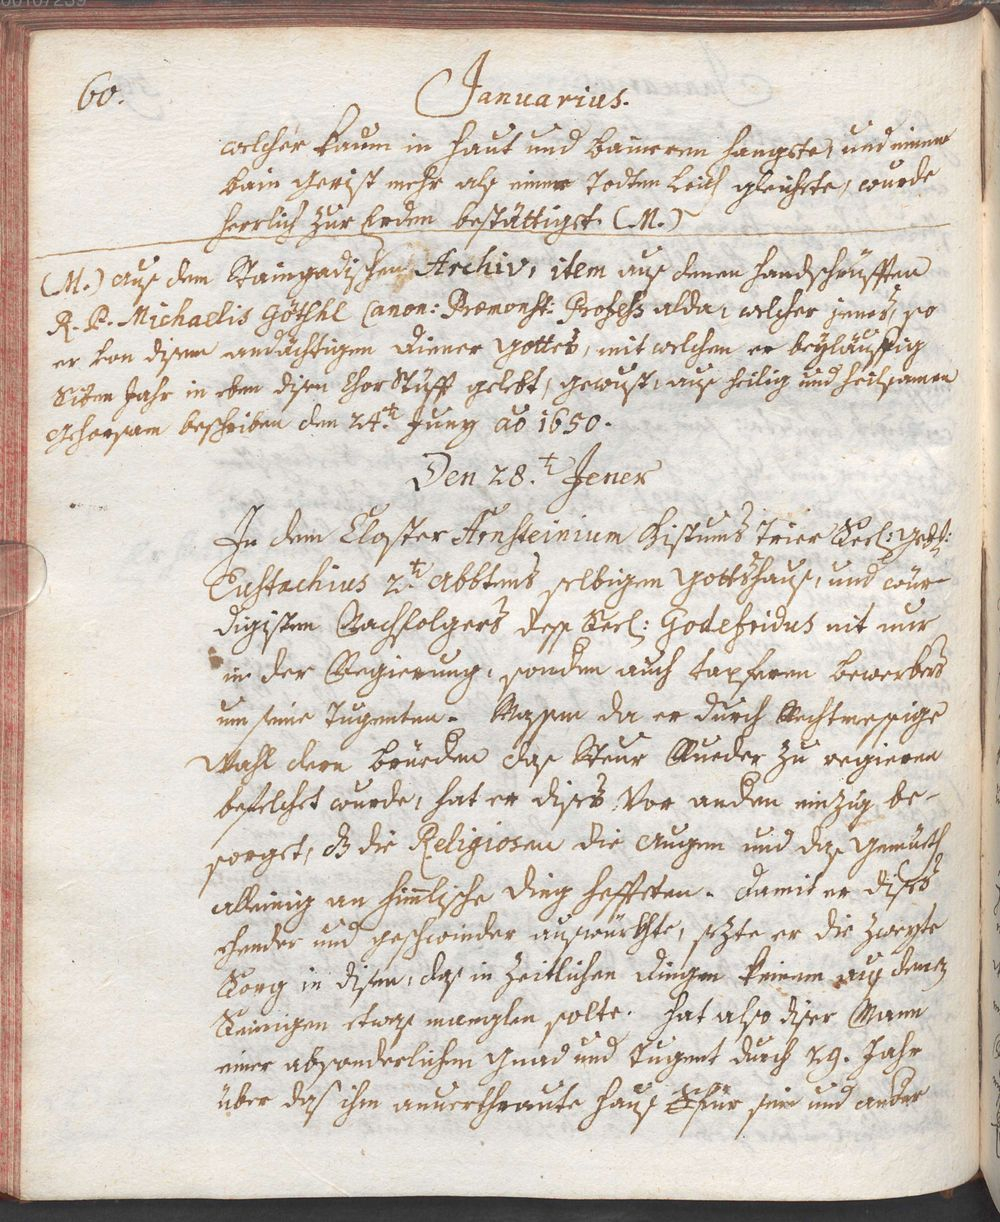 60. Januarius.
welcher kaum in haut und baineren hangete, und einem
bain gerist mehr als einem Todten leich gleichete, wurde
herrlich zur Erden bestättiget. (M.)
(M.) aus dem Staingadischen Archiv, item aus denen handschrüfften
R. P. Michaelis Göthl Canon: Præmonst: Profess alda, welcher jenes, so
er von disem andächtigen Diener Gottes, mit welchen er beyläuffig
Siben Jahr in eben disen ChorStüfft gelebt, gewust, aus heilig und heilsamen
gehorsam beschriben den 24.t Juny ao 1650.
Den 28.t Jener
In dem Closter Arnsteinium Bistums Trier Seel: gedt:
Eustachius 2.t Abbtens selbigen Gottshaus, und wür-
digisten Nachfolgers des Seel: Godefridus nit nur
in der Regierung, sonden auch tapferen bewerbers
um seine Tugenten. Massen da er durch Rechtmessige
Wahl dern brüeden das Steur Rueder zu regieren
befelchet wurde, hat er dises vor anden einzig be-
sorget, dz die Religiosen die Augen und das gemüeth
alleinig an himlische ding heffteten. Damit er dises
ehender und geschwinder auswürckhte, sezte er die zweyte
Sorg in disen, das in zeitlichen dingen keinem aus denen
Seinigen etwas manglen solte. Hat also diser Mann
einer absonderlichen Gnad und Tugent durch 29. Jahr
über das ihm anverthraute haus für sein und ander